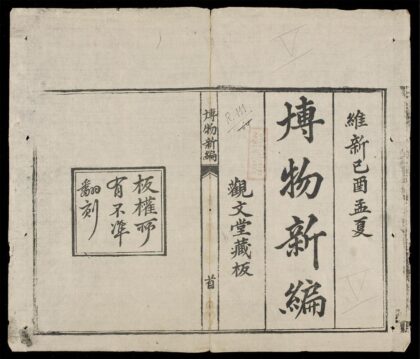 維新己酉孟夏
博物新編
觀文堂藏板
博物新編
首
板權所
有不準
翻刻